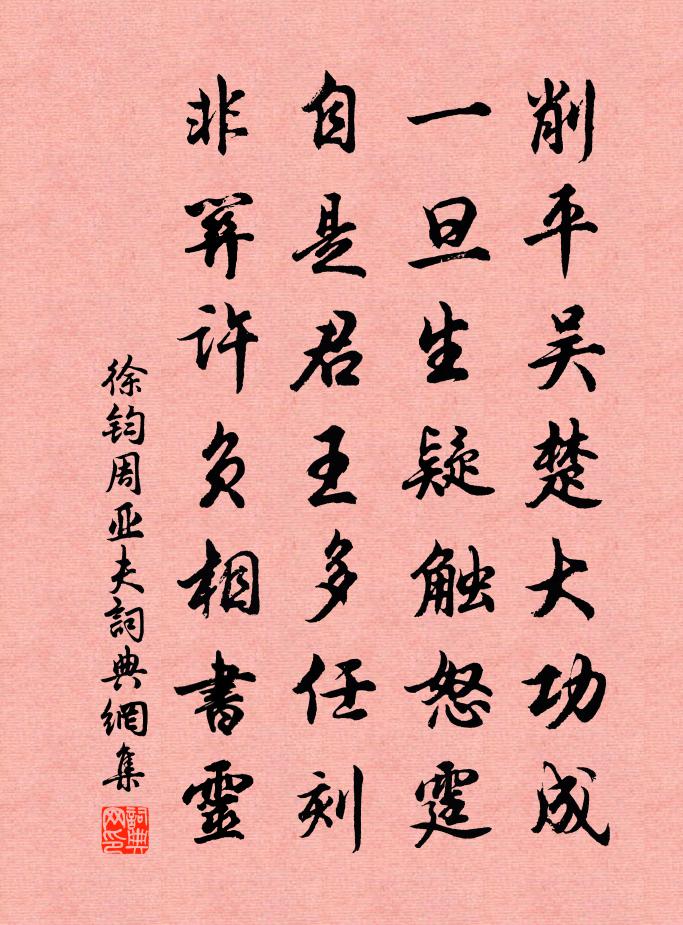 削平吴楚大功成
一旦生疑触怒霆
自是君王多任刻
非关许负相書靈
徐钧周亚夫詞典網集
詞典网印